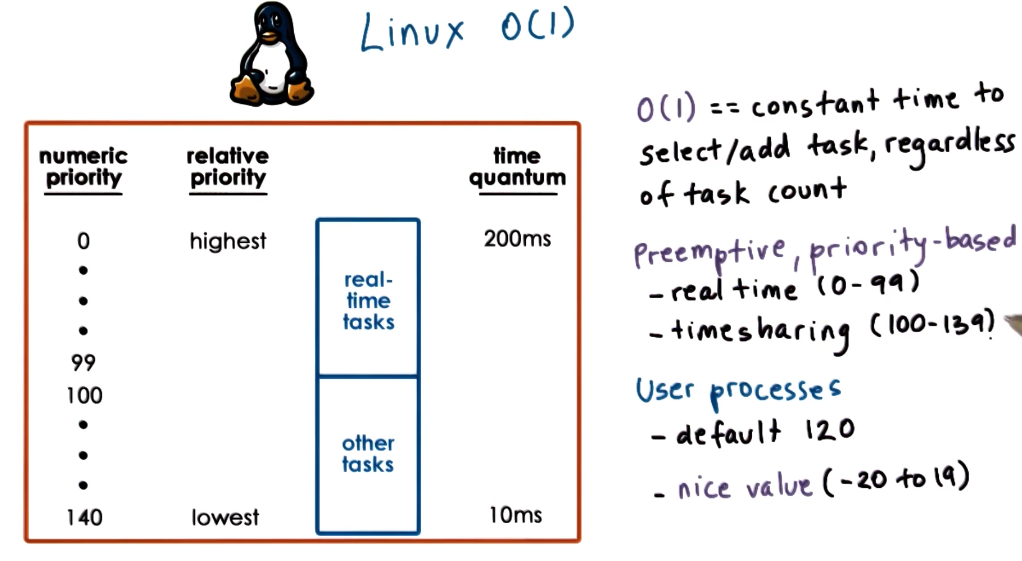 Linux O(1)
numeric priority
relative priority
time quantum
0 highest 200ms
real-
time
tasks
99
100
other
tasks
140 lowest 10ms
O(1) == constant time to
select/add task, regardless
of task count
Preemptive, priority-based
- real time (0-99)
- timesharing (100-139)
User processes
- default 120
- nice value (-20 to 19)